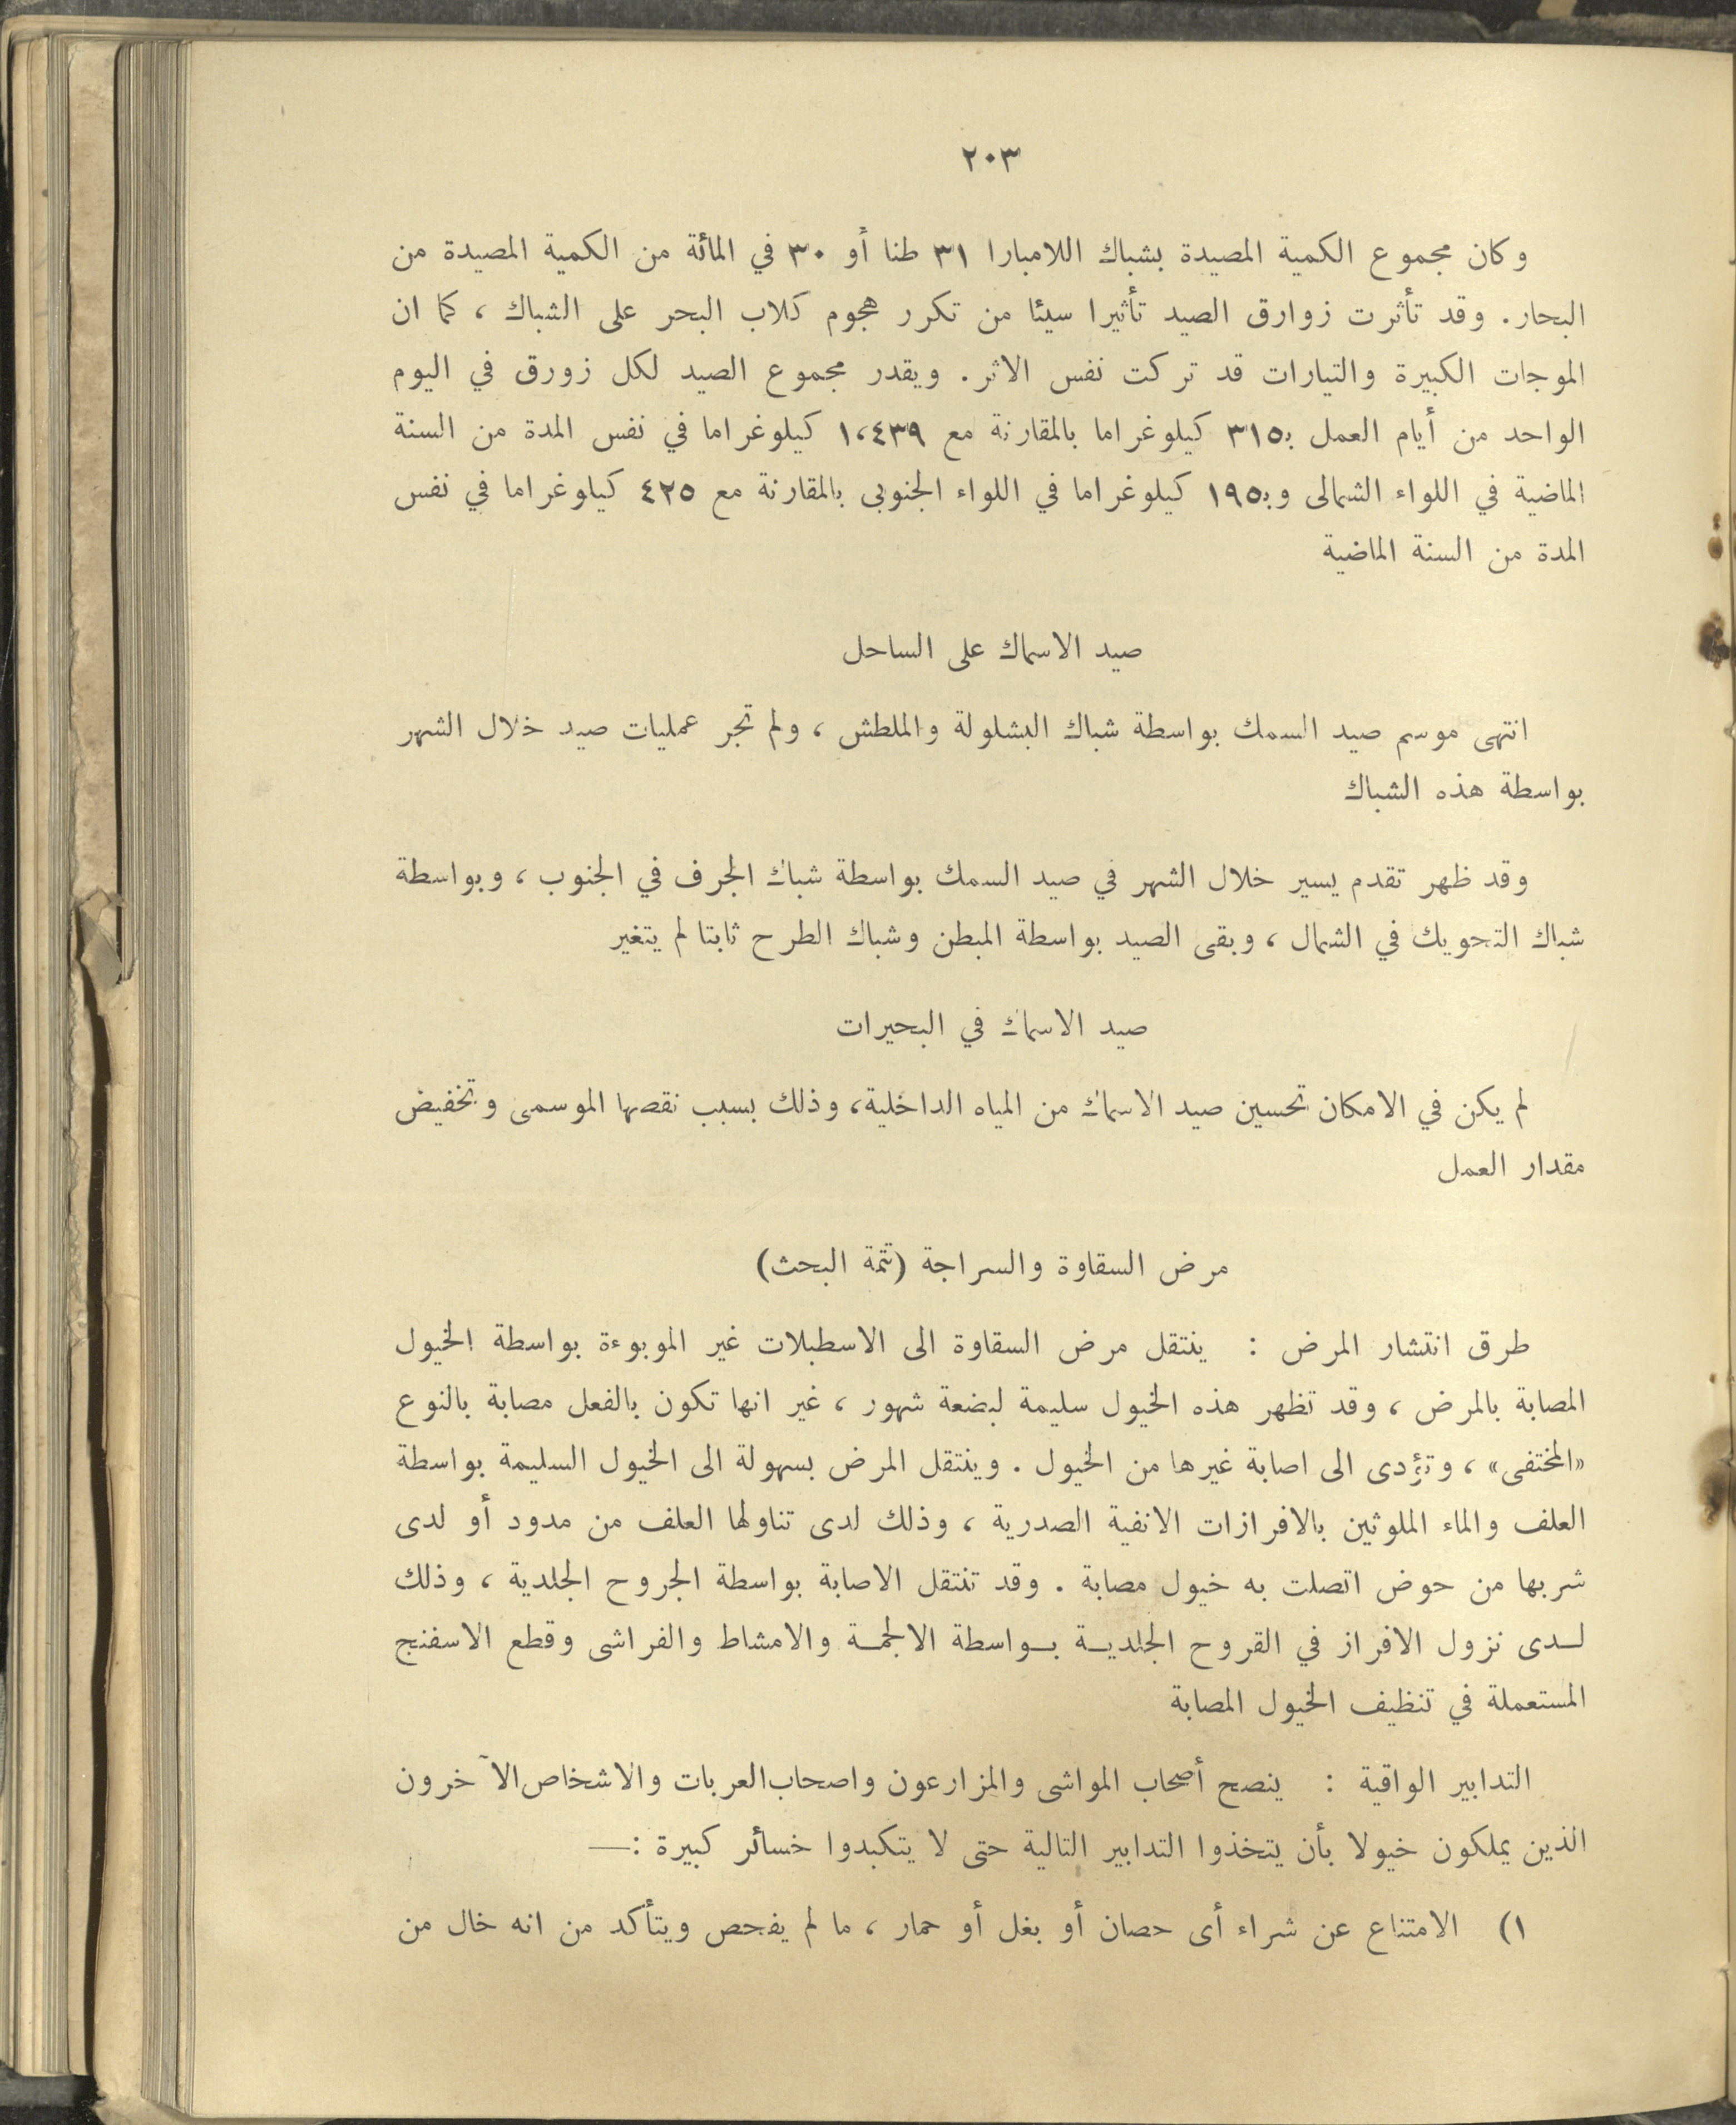 ٢٠٣
وكان مجموع الكمية المصيدة بشباك اللامبارا ٣١ طنا أو ٣٠ في المائة من الكمية المصيدة من
البحار. وقد تأثرت زوارق الصيد تأثيرا سيئا من تكرر هجوم كلاب البحر على الشباك ، كما ان
الموجات الكبيرة والتيارات قد تركت نفس الاثر. ويقدر مجموع الصيد لكل زورق في اليوم
الواحد من أيام العمل بـ٣١٥ كيلوغراما بالمقارنة مع ١،٤٣٩ كيلوغراما في نفس المدة من السنة
الماضية في اللواء الشمالى وبـ١٩٥ كيلوغراما في اللواء الجنوبى بالمقارنة مع ٤٢٥ كيلوغراما في نفس
المدة من السنة الماضية
صيد الاسماك على الساحل
انتهى موسم صيد السمك بواسطة شباك البشلولة والملطش ، ولم تجر عمليات صيد خلال الشهر
بواسطة هذه الشباك
وقد ظهر تقدم يسير خلال الشهر في صيد السمك بواسطة شباك الجرف في الجنوب ، وبواسطة
شباك التحويك في الشمال ، وبقى الصيد بواسطة المبطن وشباك الطرح ثابتا لم يتغير
صيد الاسماك في البحيرات
لم يكن في الامكان تحسين صيد الاسماك من المياه الداخلية، وذلك بسبب نقصها الموسمى وتخفيض
مقدار العمل
مرض السقاوة والسراجة (تتمة البحث)
طرق انتشار المرض : ينتقل مرض السقاوة الى الاسطبلات غير الموبوءة بواسطة الخيول
المصابة بالمرض ، وقد تظهر هذه الخيول سليمة لبضعة شهور ، غير انها تكون بالفعل مصابة بالنوع
«المختفى» ، وتؤدى الى اصابة غيرها من الخيول . وينتقل المرض بسهولة الى الخيول السليمة بواسطة
العلف والماء الملوثين بالافرازات الانفية الصدرية ، وذلك لدى تناولها العلف من مدود أو لدى
شربها من حوض اتصلت به خيول مصابة . وقد تنتقل الاصابة بواسطة الجروح الجلدية ، وذلك
لـدى نزول الافراز في القروح الجلديـة بـواسطة الالجمـة والامشاط والفراشى وقطع الاسفنج
المستعملة في تنظيف الخيول المصابة
التدابير الواقية : ينصح أصحاب المواشى والمزارعون واصحاب العربات والاشخاص الآخرون
الذين يملكون خيولا بأن يتخذوا التدابير التالية حتى لا يتكبدوا خسائر كبيرة :—
١) الامتناع عن شراء أى حصان أو بغل أو حمار ، ما لم يفحص ويتأكد من انه خال من